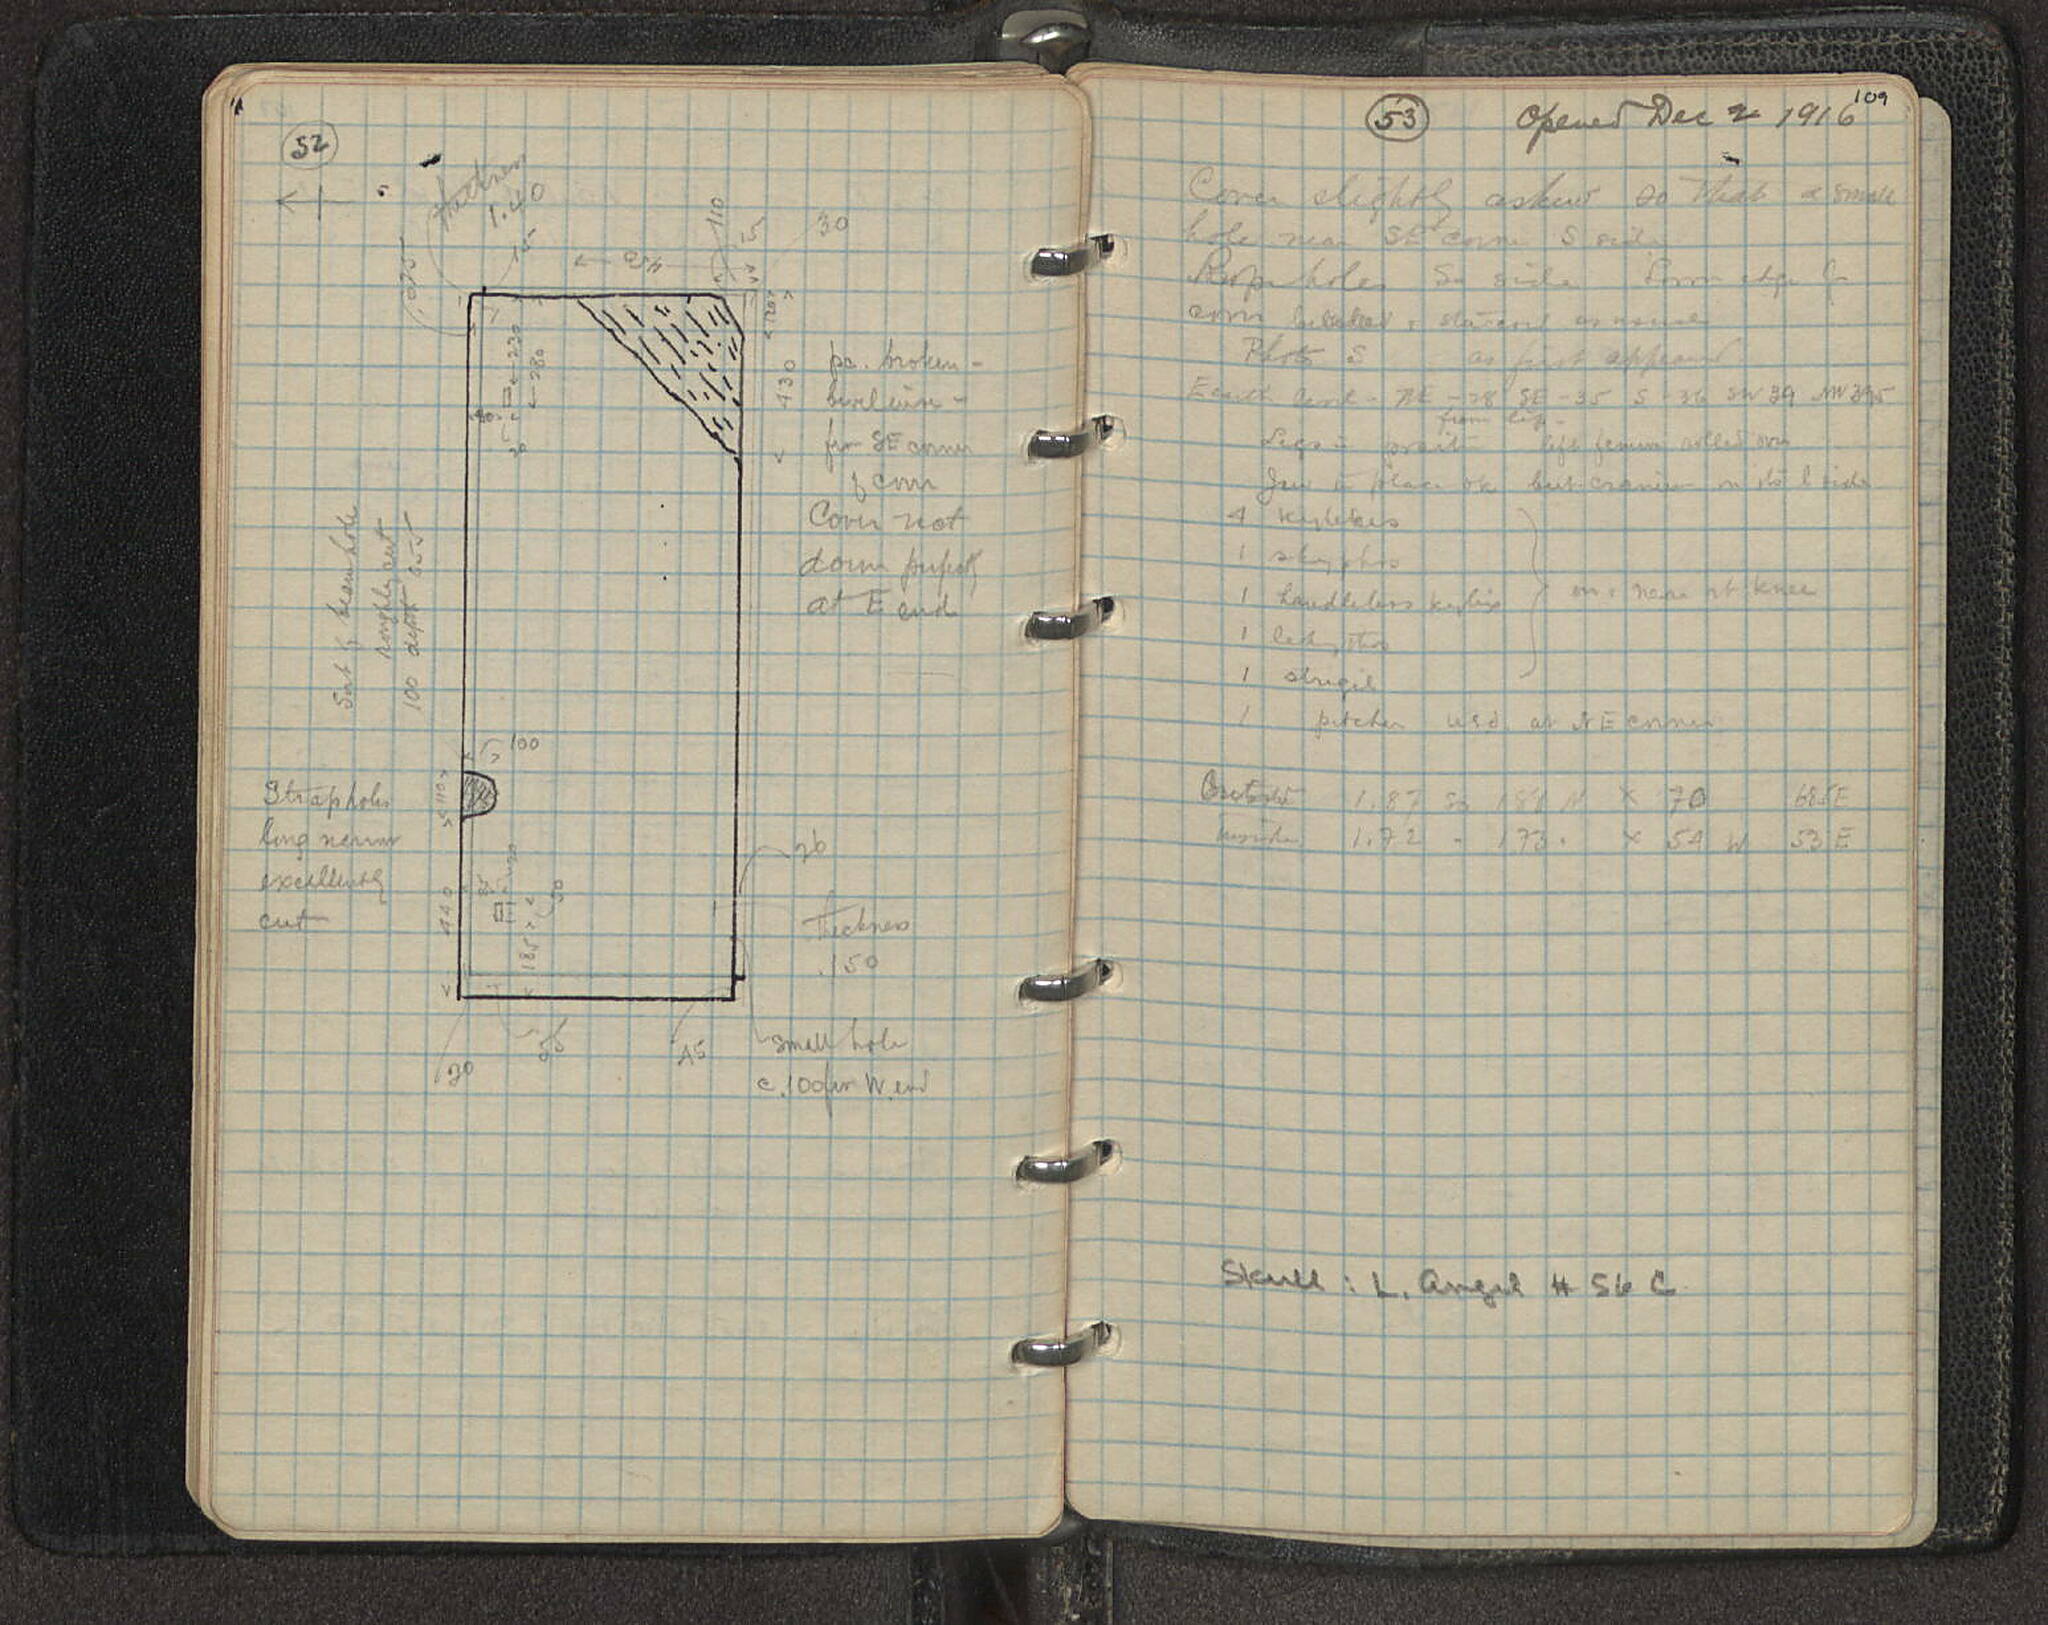 52
Thickness
1.40
15
.025
110
15
30
430
120
230
280
80
20
pc. broken -
for SE corner
of cover
Cover not
down properly
at E end
Sort of beam hole
roughly cut
100 depth 055
100
110
Strap holes
long narrow
excellently
cut
440
185
50
20
Thickness
.150
30
55
45
small hole
c. 100 for W. end
53
Opened Dec 2 1916
109
Cover slightly askew so that a small
hole near SE corner S side
Rope holes So side
as usual
Photo S as first appeared
Earth level - NE - 28 SE - 35 S - 36 SW 39 NW 395
from lip -
Legs in left femur rolled over
Jaw in place ok but cranium on its l side
4 kylikes
1 skyphos
1 handleless kylix
on & near rt knee
1 lekythos
1 strigil
1 pitcher usd. at NE corner
Outside 1.87 So 181 N × 70 685 E
Inside 1.72 - 173 . × 54 W 53 E
Skull : L. Angel # 56 C